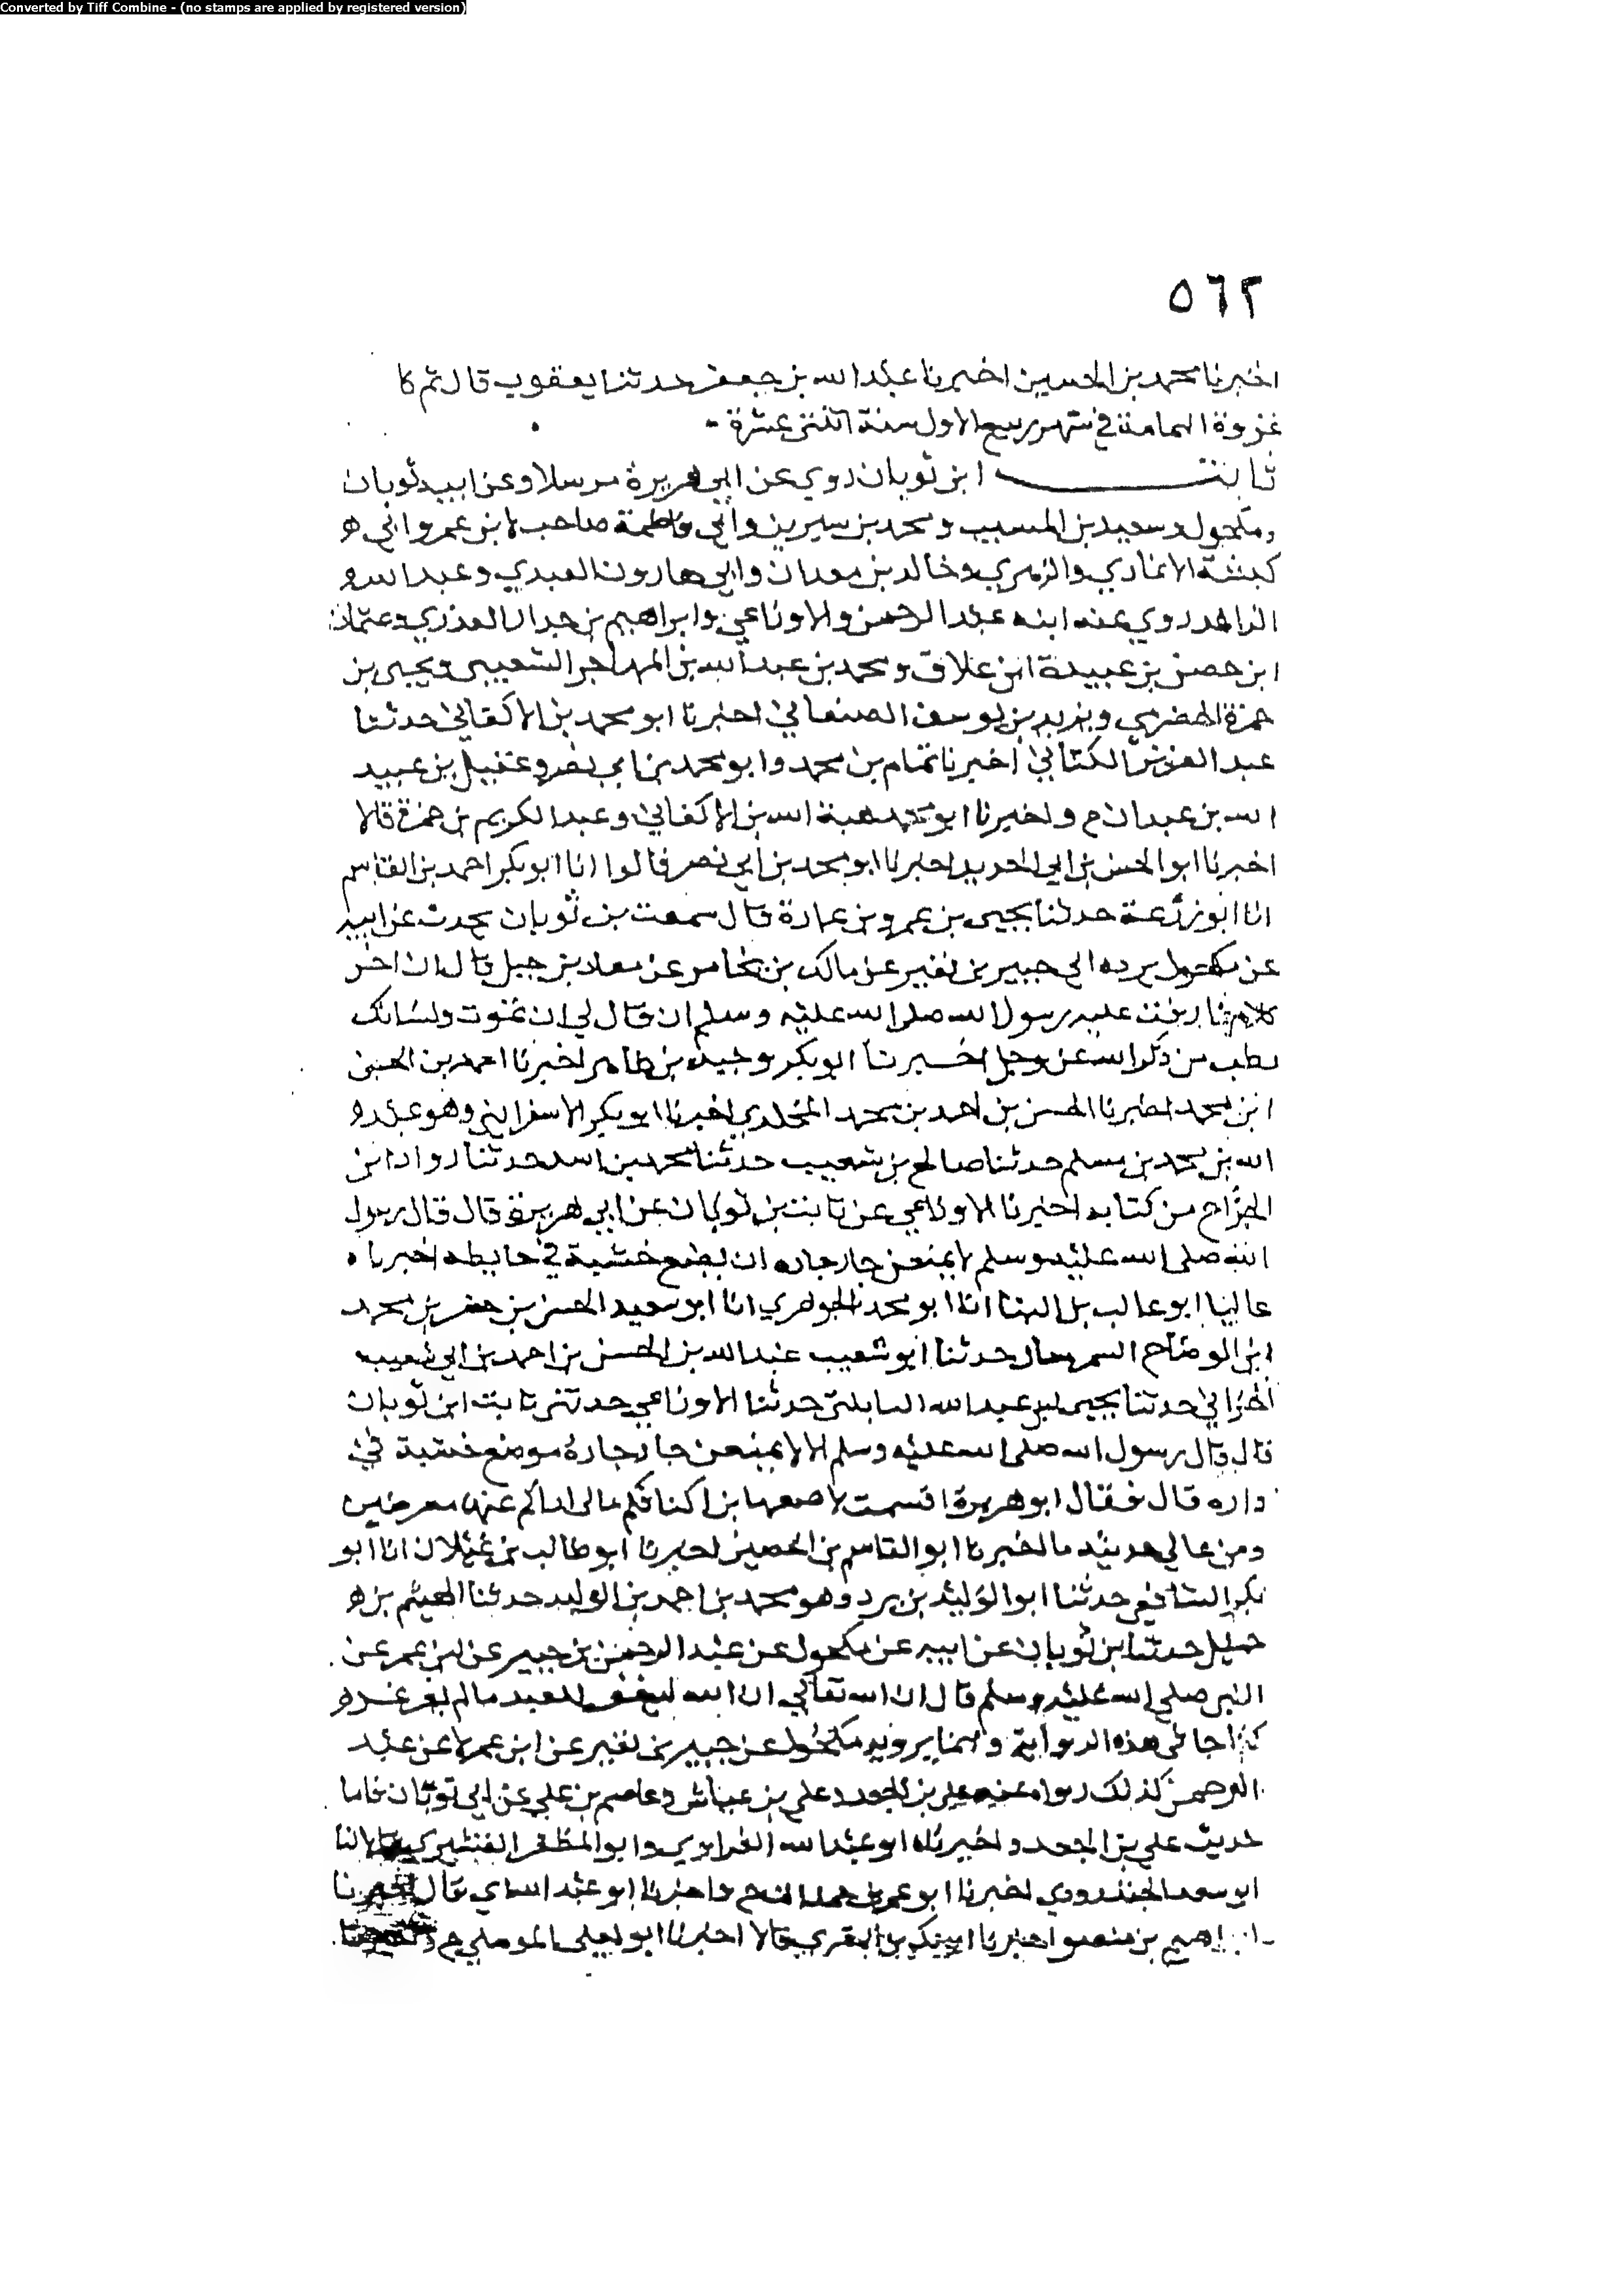 Converted by Tiff Combine - (no stamps are applied by registered version)
٥٦٢
اخبرنا محمد بن الحسين اخبرنا عبد الله بن جعفر حدثنا يعقوب قال ثم كا
غزوة اليمامة في شهر ربيع الاول سنة اثنتى عشرة -
ثابت ابن ثوبان روي عن ابي هريرة مرسلا وعن ابيه ثوبان
ومكحول وسعيد بن المسيب ومحمد بن سيرين وابي فاطمة صاحب لابن عمر وابي ه
كبشة الانماري والزهري وخالد بن معدان وابي هارون العبدي وعبد الله و
الزاهد روي عنه ابنه عبد الرحمن والاوزاعي وابراهيم بن جدار العذري وعثمان
ابن حصن بن عبيدة ابن علاق ومحمد بن عبد الله بن المهاجر الشعيبي ويحيى بن
حمزة الحضرمي ويزيد بن يوسف الصنعاني اخبرنا ابو محمد بن الاكفاني حدثنا
عبد العزيز الكتاني اخبرنا تمام بن محمد وابو محمد بن ابي نصر وعقيل بن عبيد
الله بن عبدان ح واخبرنا ابو محمد هبة الله بن الاكفاني وعبد الكريم بن حمزة قالا
اخبرنا ابو الحسن بن ابي الحديد اخبرنا ابو محمد بن ابي نصر قالوا انا ابو بكر احمد بن القاسم
انا ابو زرعة حدثنا يحيى بن عمرو بن عمارة قال سمعت بن ثوبان يحدث عن ابيه
عن مكحول يرده الى جبير بن نفير عن مالك بن يخامر عن معاذ بن جبل قال ان اخر
كلام فارقت عليه رسول الله صلى الله عليه وسلم ان قال لي ان تموت ولسانك
رطب من ذكر الله عز وجل اخبرنا ابو بكر وجيه بن طاهر اخبرنا احمد بن الحسن
ابن محمد اخبرنا الحسن بن احمد بن محمد المخلدي اخبرنا ابو بكر الاسفرايني وهو عبد و
الله بن محمد بن مسلم حدثنا صالح بن شعيب حدثنا محمد بن اسد حدثنا رواد ابن
الجراح من كتابه اخبرنا الاوزاعي عن ثابت بن ثوبان عن ابي هريرة قال قال رسول
الله صلى الله عليه وسلم لا يمنعن جار جاره ان يضع خشبة في حايطه اخبرناه
عاليا ابو غالب بن البنا انا ابو محمد الجوهري انا ابو سعيد الحسن بن جعفر بن محمد
ابن الوضاح السمسار حدثنا ابو شعيب عبد الله بن الحسن بن احمد بن ابي شعيب
الحراني حدثنا يحيى بن عبد الله البابلتي حدثنا الاوزاعي حدثني ثابت ابن ثوبان
قال قال رسول الله صلى الله عليه وسلم الا لا يمنعن جار جاره موضع خشبة في
داره قال فقال ابو هريرة اقسمت لاضعها بن اكتافكم مالي اراكم عنها معرضين
ومن عالي حديثه ما اخبرنا ابو القاسم بن الحصين اخبرنا ابو طالب بن غيلان انا ابو
بكر الشافعي حدثنا ابو الوليد بن برد وهو محمد بن احمد بن الوليد حدثنا الهيثم بن ه
جميل حدثنا بن ثوبان عن ابيه عن مكحول عن عبد الرحمن بن جبير عن ابن عمر عن
النبي صلى الله عليه وسلم قال ان الله تعالي ان الله ليغفر للعبد مالم يغرغر ه
كذا جا في هذه الرواية وانما يرويه مكحول عن جبير بن نفير عن ابن عمر لا عن عبد
الرحمن كذلك رواه عنه علي بن الجعد وعلي بن عياش وعاصم بن علي عن ابي ثوبان فاما
حديث علي بن الجعد واخبرناه ابو عبد الله الفراوي وابو المظفر القشيري قالا انا
ابو سعد الجنزرودي اخبرنا ابو عمرو بن حمدان ح واخبرنا ابو عبد الله قال اخبرنا
ابراهيم بن منصور اخبرنا ابو بكر بن المقري قالا اخبرنا ابو يعلى الموصلي ح